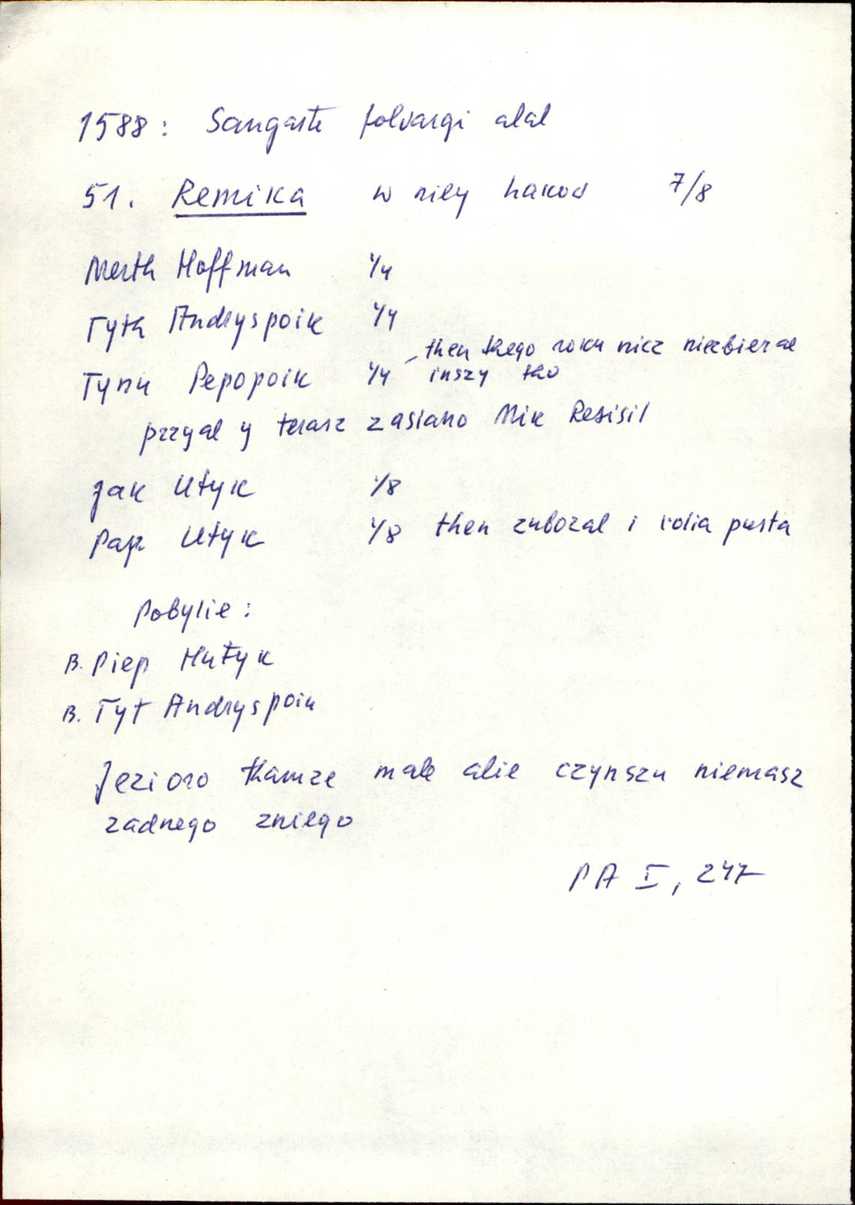 1588: Sangaste folvargi alal
51. Remika w niey hakow 7/8
Merth Hoffman 1/4
Tyth Andryspoik 1/4
Tynu Pepopoik 1/4 then thego roku nicz niezbieral
inszy tho
przyal y terasz zasiano Mik Resisil
Jak Utyk 1/8
Pap Utyk 1/8 then zubozal i rolia pusta
Pobylie:
B. Piep Hutyk
B. Tyt Andryspoik
Jezioro thamze male alie czynszu niemasz
zadnego zniego
PA I, 247